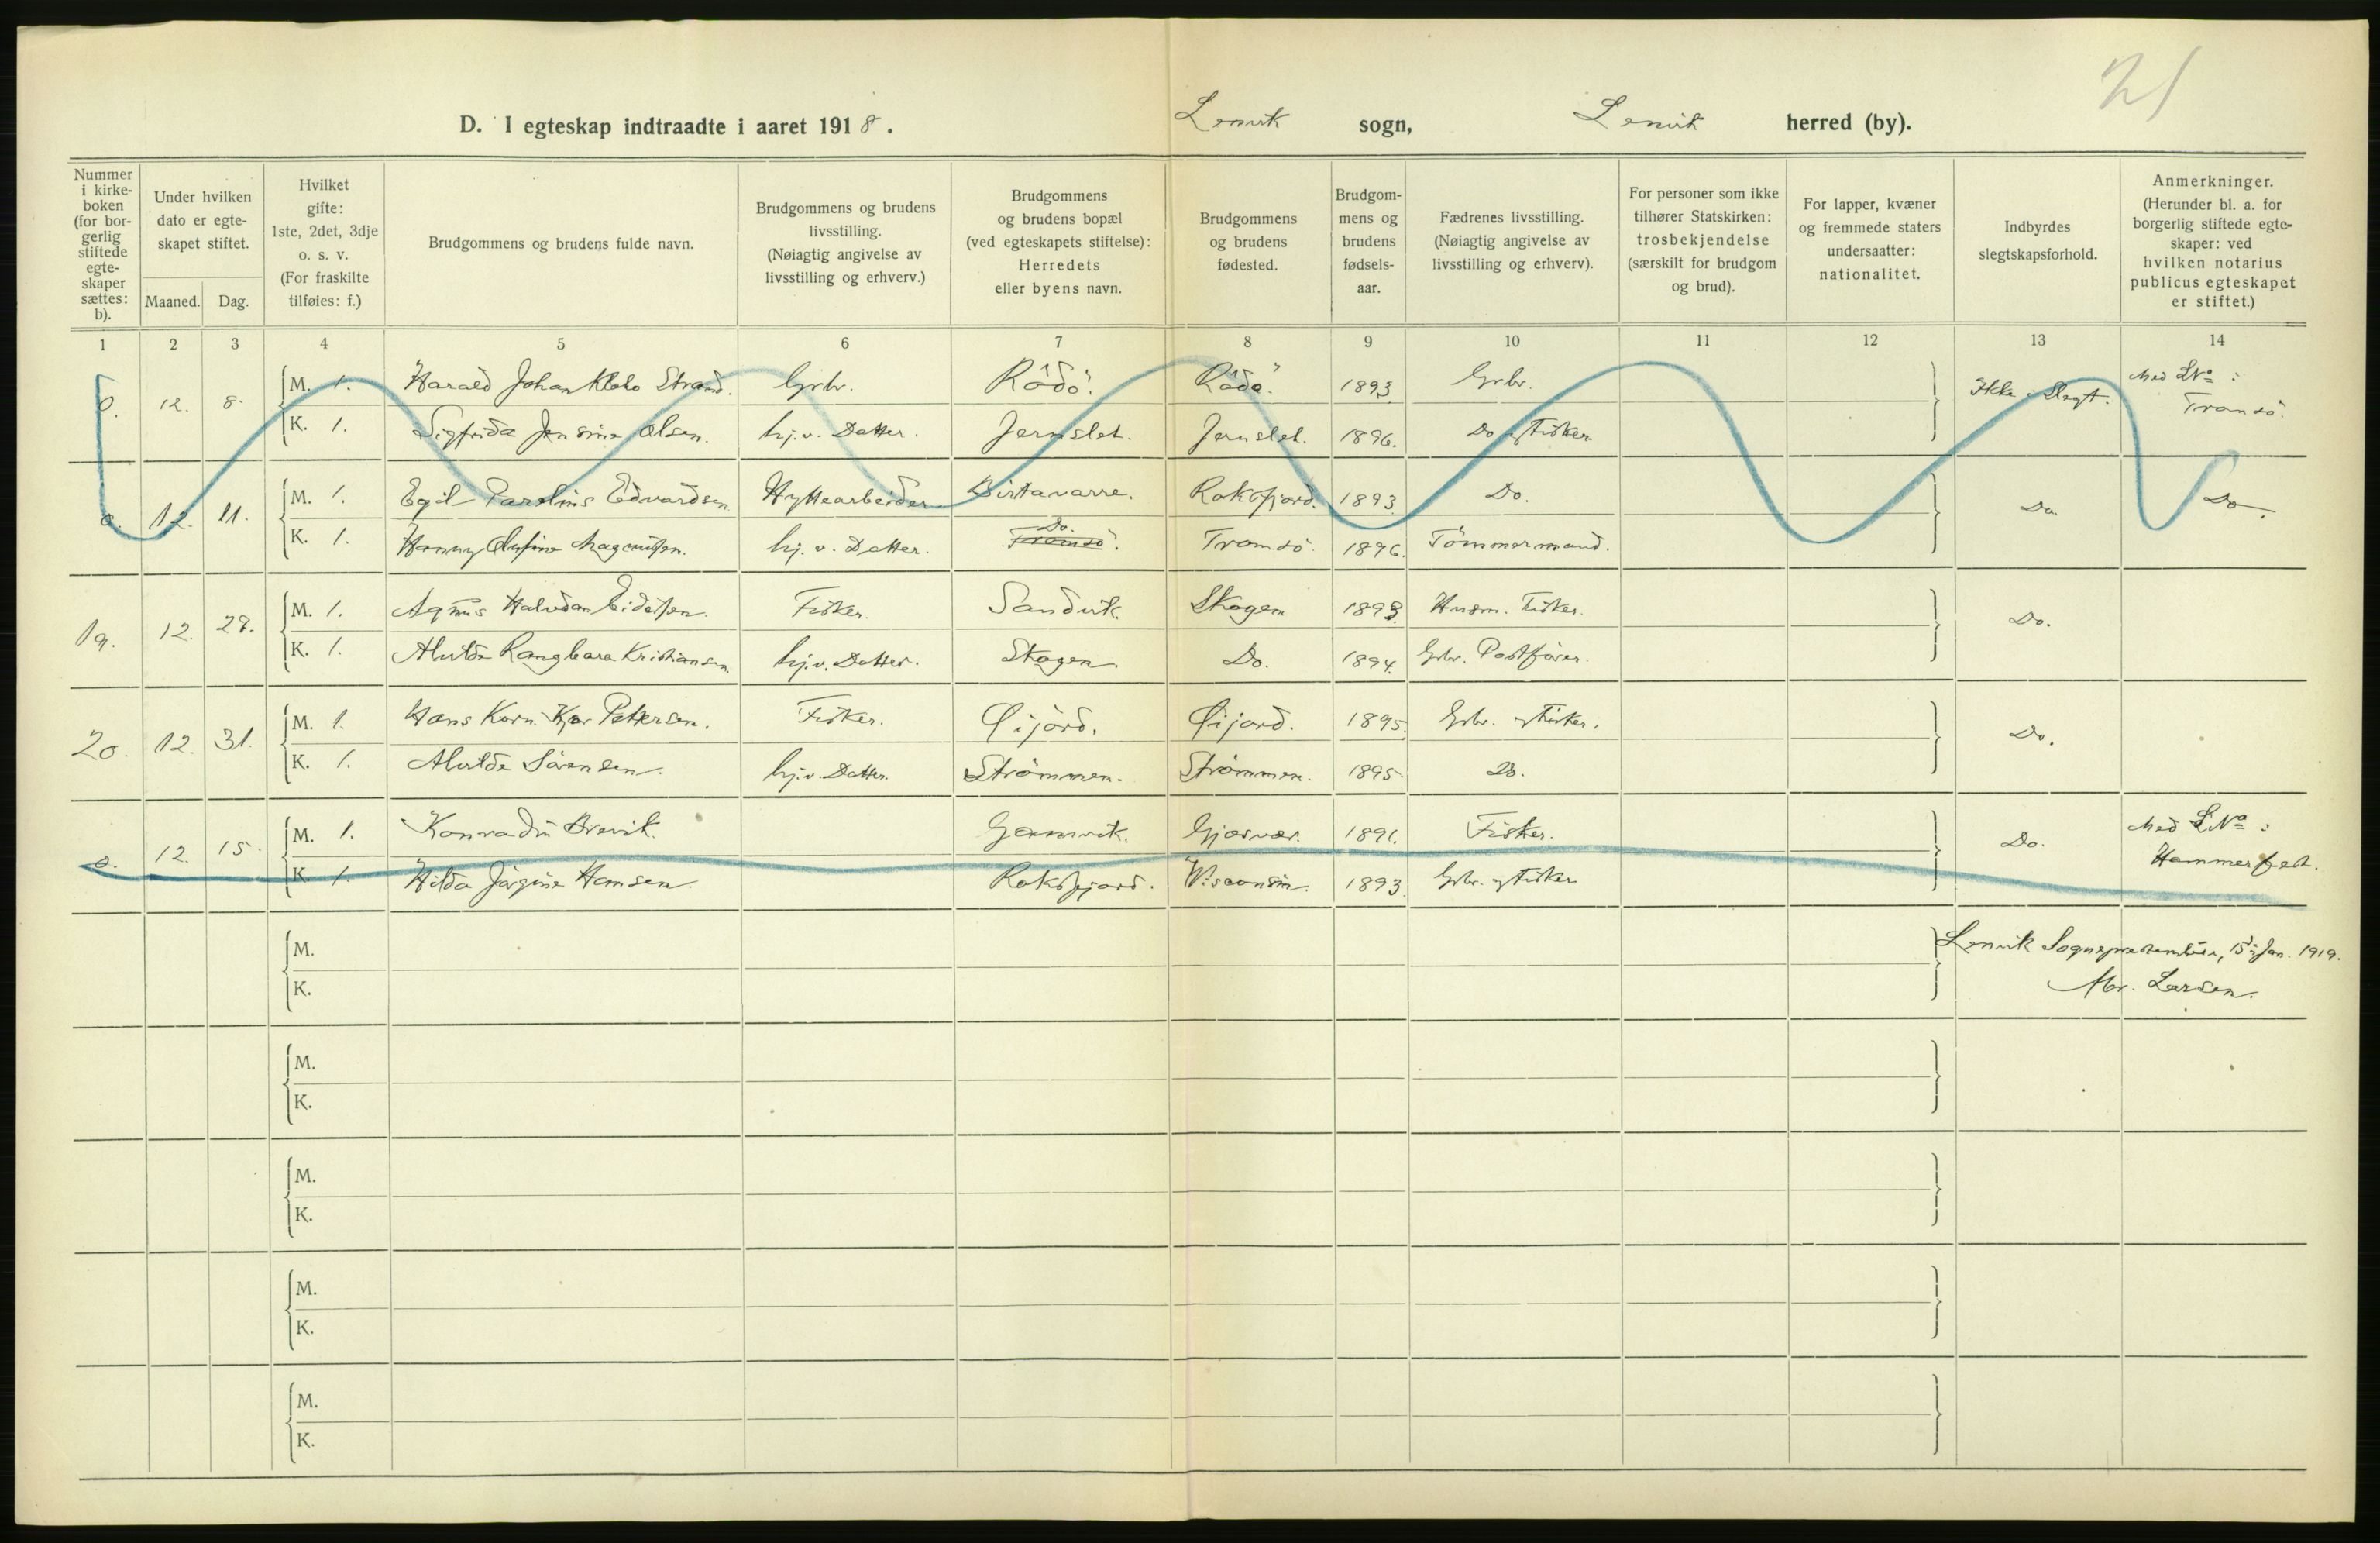 21
D. I egteskap indtraadte i aaret 1918. Lenvik sogn, Lenvik herred (by).
Nummer i kirkeboken (for borgerlig stiftede egteskaper sættes: b).
Under hvilken dato er egteskapet stiftet.
Maaned. Dag.
Hvilket gifte: 1ste, 2det, 3dje o. s. v. (For fraskilte tilføies: f.)
Brudgommens og brudens fulde navn.
Brudgommens og brudens livsstilling. (Nøiagtig angivelse av livsstilling og erhverv.)
Brudgommens og brudens bopæl (ved egteskapets stiftelse): Herredets eller byens navn.
Brudgommens og brudens fødested.
Brudgommens og brudens fødselsaar.
Fædrenes livsstilling. (Nøiagtig angivelse av livsstilling og erhverv).
For personer som ikke tilhører Statskirken: trosbekjendelse (særskilt for brudgom og brud).
For lapper, kvæner og fremmede staters undersaatter: nationalitet.
Indbyrdes slegtskapsforhold.
Anmerkninger. (Herunder bl. a. for borgerlig stiftede egteskaper: ved hvilken notarius publicus egteskapet er stiftet.)
1 2 3 4 5 6 7 8 9 10 11 12 13 14
0. 12. 8. M. 1. Harald Johan Strand. Grbr. Rödö. Rödö. 1893. Grbr. Ikke i Slegt. Med LNo: Tromsö.
K. 1. Sigfrida Jensine Olsen. hj. v. Datter. Jernslet. Jernslet. 1896. Do og Fisker.
0. 12. 11. M. 1. Egil Parelius Edvardsen. Hyttearbeider Birtavarre. Roksfjord. 1893. Do. Do Do.
K. 1. Hanny Olufine Magnussen. hj. v. Datter. Do. Tromsö. Tromsö. 1896. Tömmermand.
19. 12. 28. M. 1. Halvdan Eidissen. Fisker. Sandvik. Skogen 1893. Husm. Fisker. Do.
K. 1. Alvilde Kristiansen. hj. v. Datter. Skogen. Do. 1894. Grbr. Postförer.
20. 12. 31. M. 1. Hans Pettersen. Fisker. Öijord. Öijord. 1895. Grbr. og Fisker. Do.
K. 1. Alvilde Sörensen. hj. v. Datter. Strömmen. Strömmen. 1895. Do.
0. 12. 15. M. 1. Konradin Brevik. Gamvik. Gjæsvær. 1891. Fisker. Do. Med LNo: Hammerfest.
K. 1. Hilda Jörgine Hansen. Roksfjord. Wisconsin. 1893. Grbr. og Fisker
M. Lenvik Sogneprestembede, 15de Jan. 1919.
K. Larsen.
M.
K.
M.
K.
M.
K.
M.
K.